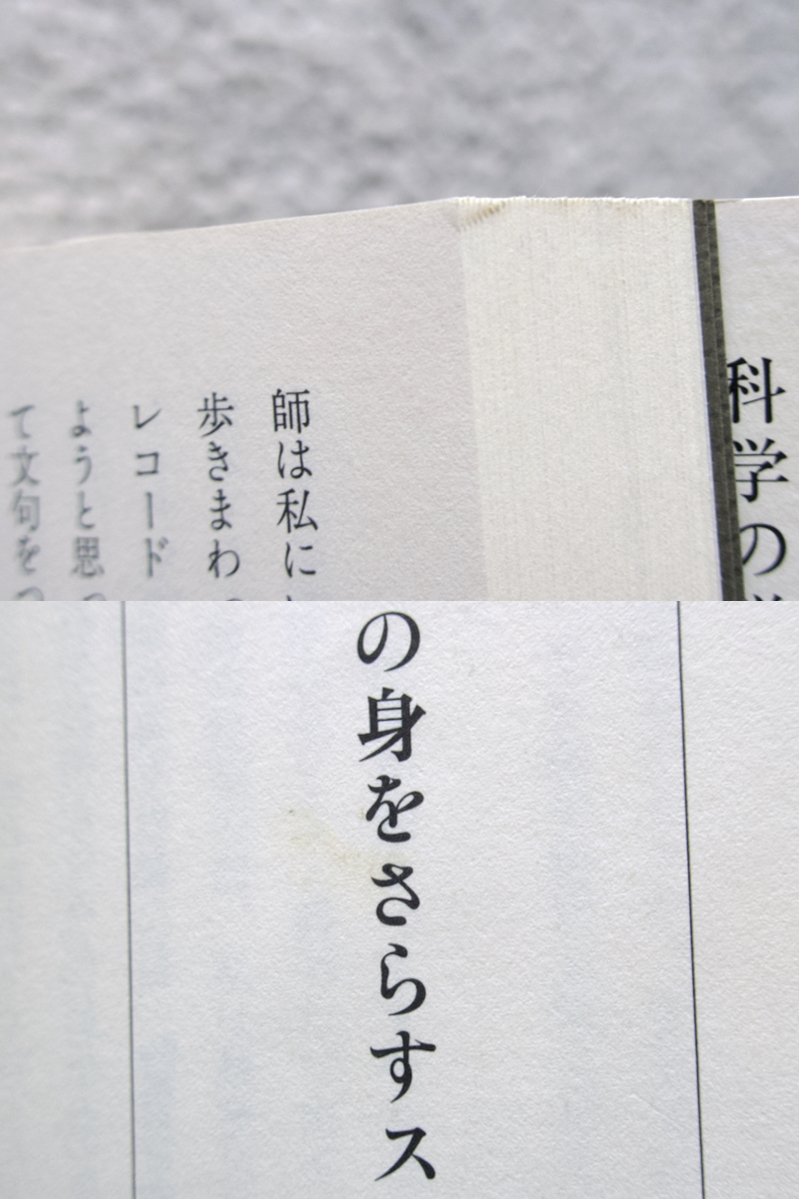 科学の
師は私に
歩きまわ
レコード
ようと思
て文句を
の身をさらすス